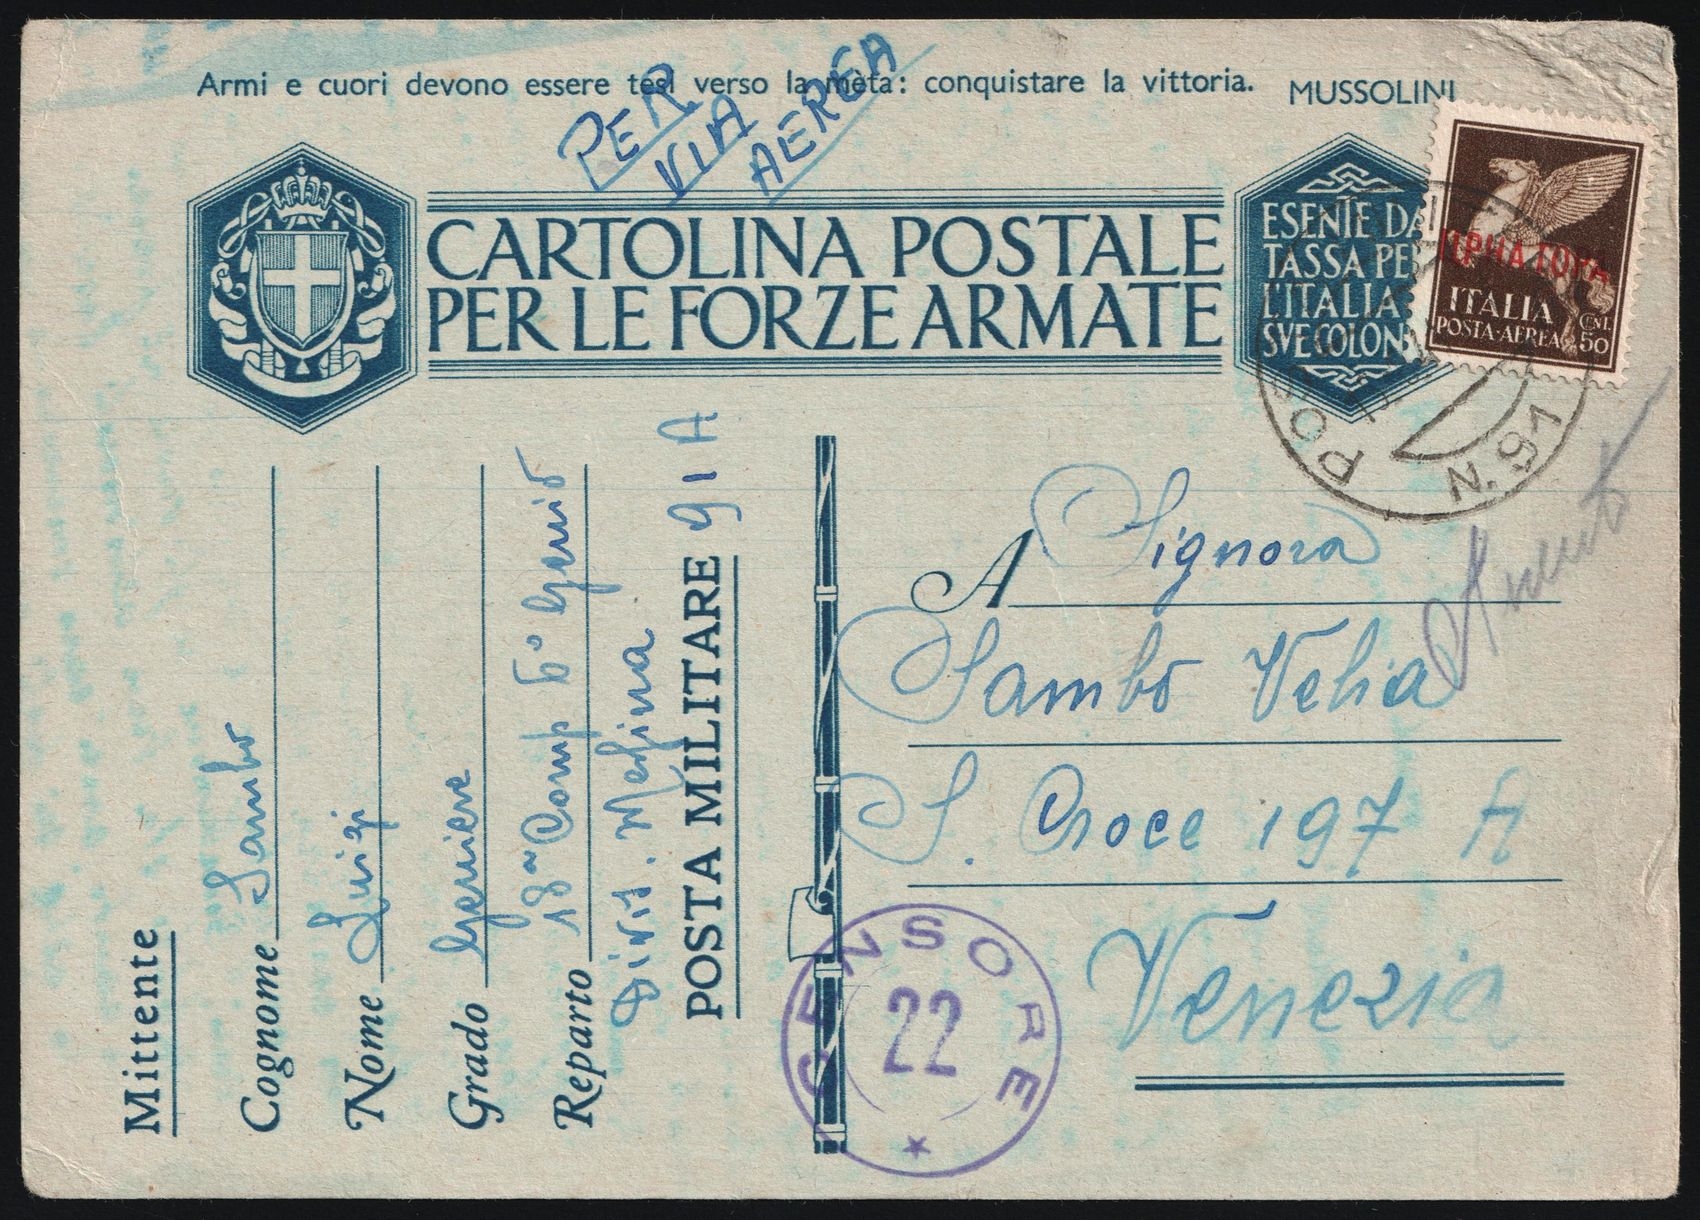 Armi e cuori devono essere tesi verso la mèta: conquistare la vittoria. MUSSOLINI
PER
VIA
AEREA
CARTOLINA POSTALE
PER LE FORZE ARMATE
ESENTE DA
TASSA PE
L'ITALIA
SVE COLON
ITALIA
POSTA-AEREA
CENT.
50
N. 91
Mittente
Cognome Sambo
Nome Luigi
Grado Geniere
Reparto 18ª Comp Bº Genio
Divis. Messina
POSTA MILITARE 91 A
A Signora
Sambo Velia
S. Croce 197 A
Venezia
CENSORE
22